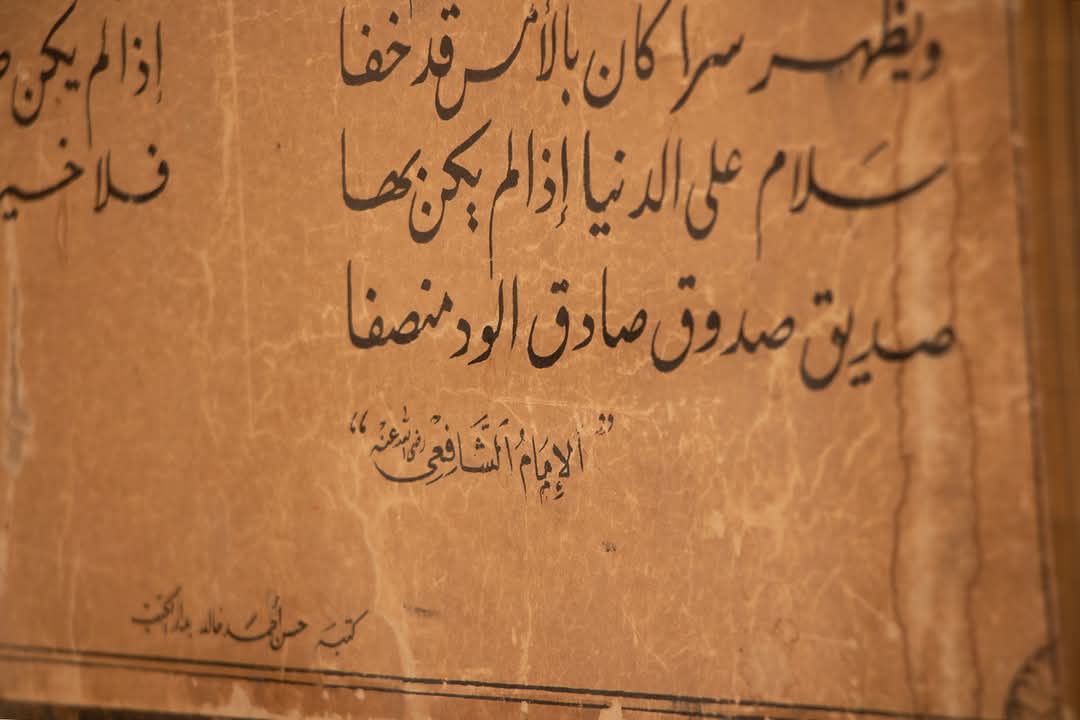 ويظهر سرا كان بالأمس قد خفا
إذا لم يكن
سلام على الدنيا إذا لم يكن بها
فلا خير
صديق صدوق صادق الود منصفا
"الإِمَامُ الشَّافِعِي رضي الله عنه"
كتبه حسن أحمد خالد بدار الكتب